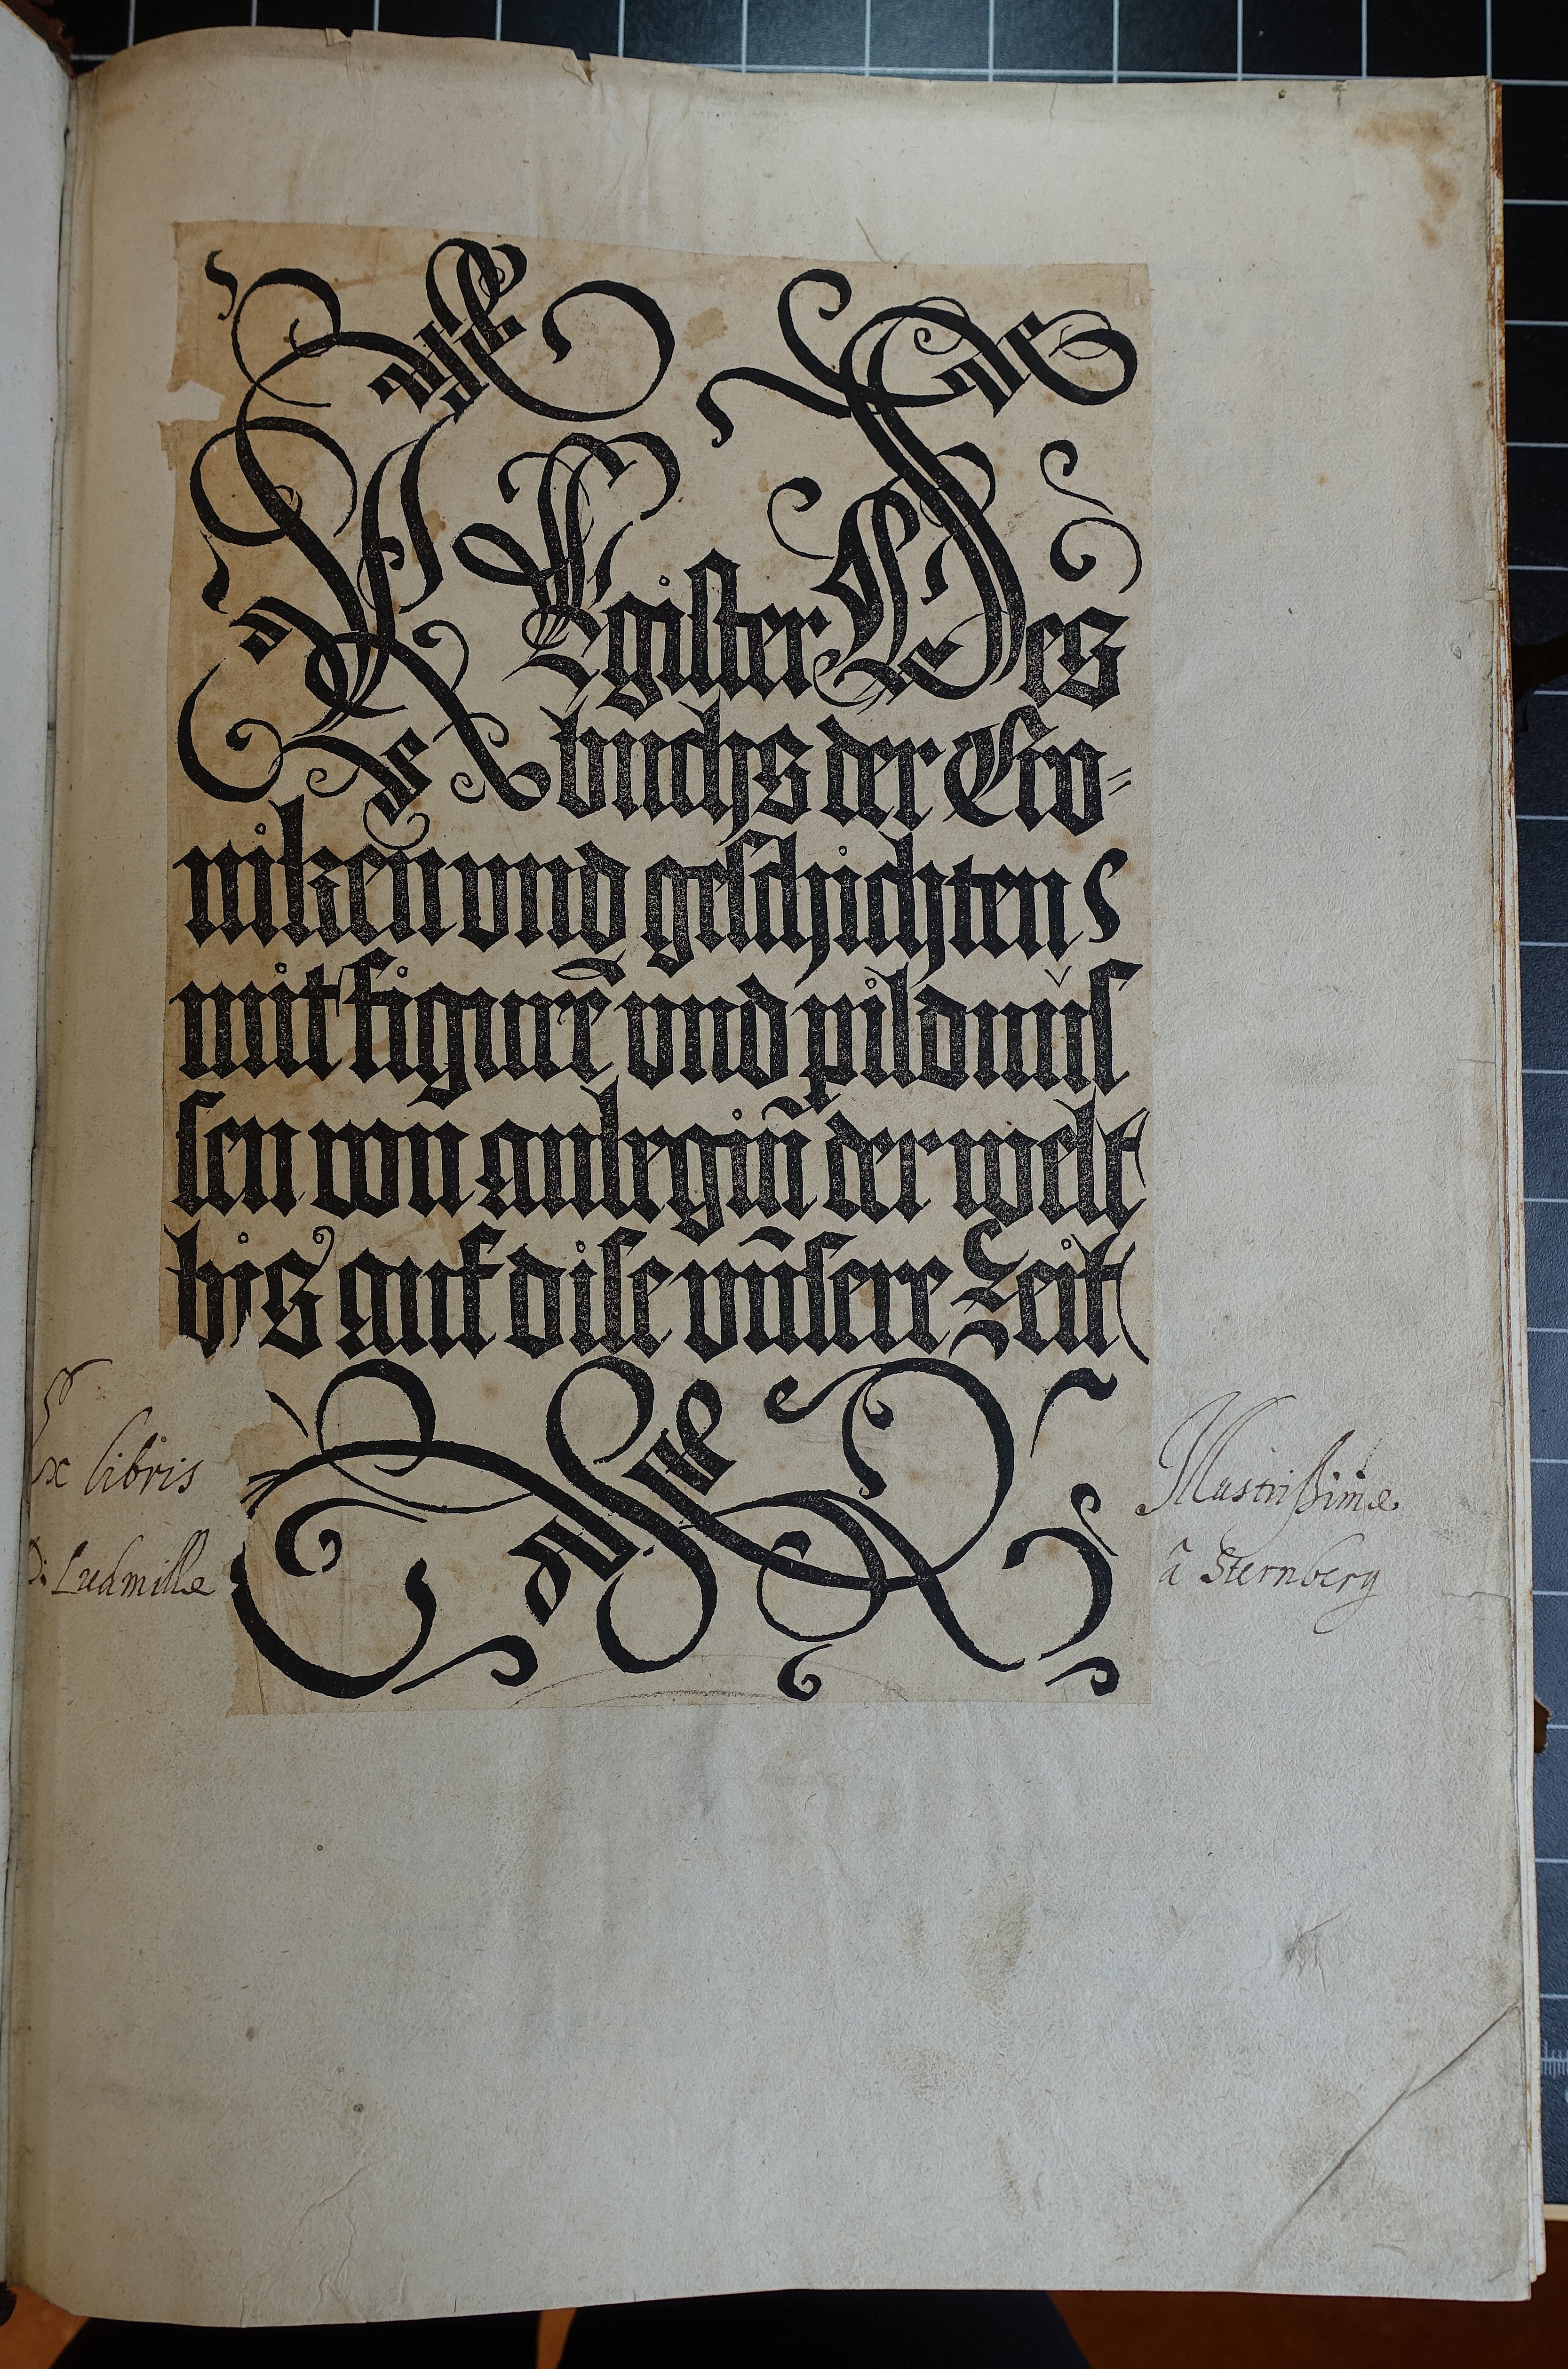 REgister Des
buchs der Cro-
niken vnd geschichten
mit figurẽ vnd pildnus
sen von anbegiñ der welt
bis auf dise vñsere Zeit
Ex libris Illustrißimæ
D: Ludmillæ â Sternberg